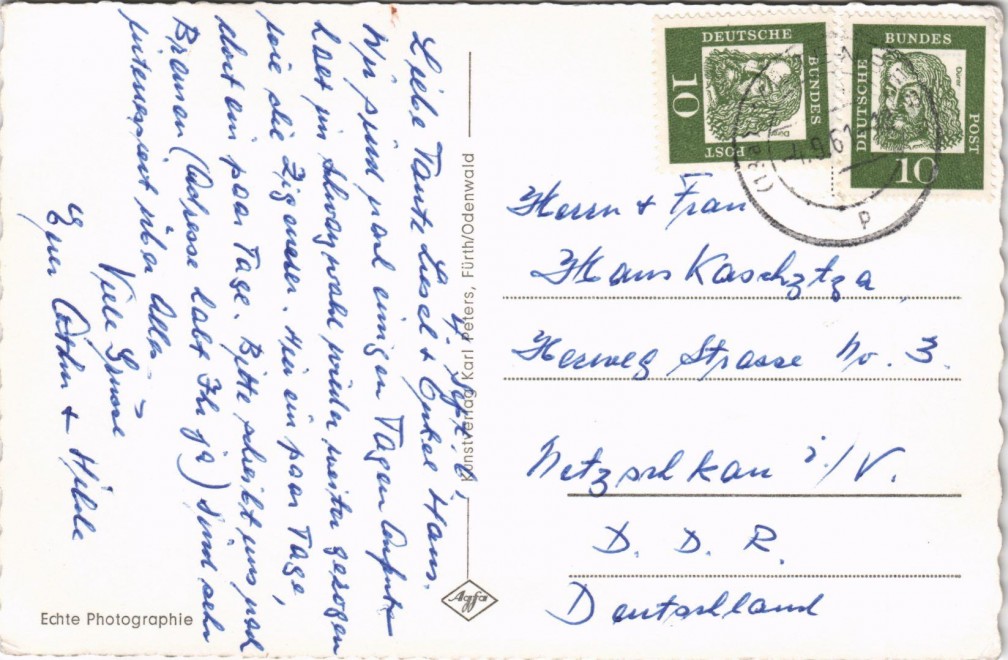 4. Sept. 61
Liebe Tante Liesel + Onkel Hans.
Wir sind nach einigen Tagen Aufent-
halt im Schwarzwald wieder weiter gezogen
wie die Zigeuner. Hier ein paar Tage,
dort ein paar Tage. Bitte schreibt uns nach
Bremen (Adresse habt Ihr ja) sind sehr
interessiert über Alles –
Viele Grüsse
Euer Arthur + Hilde
Echte Photographie
Kunstverlag Karl Peters, Fürth/Odenwald
Agfa
DEUTSCHE
BUNDES
POST
10
Dürer
DEUTSCHE
BUNDES
POST
10
Dürer
-4.9.61
p
Herrn + Frau
Hans Kaschztza
Herweg Strasse No. 3.
Netzschkau i./V.
D. D. R.
Deutschland